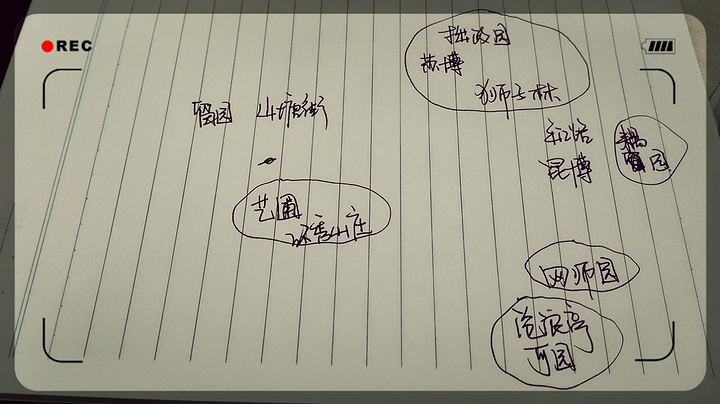 REC
拙政园
苏博
狮子林
留园 山塘街
耦园
昆博
艺圃
环秀山庄
网师园
沧浪亭
可园